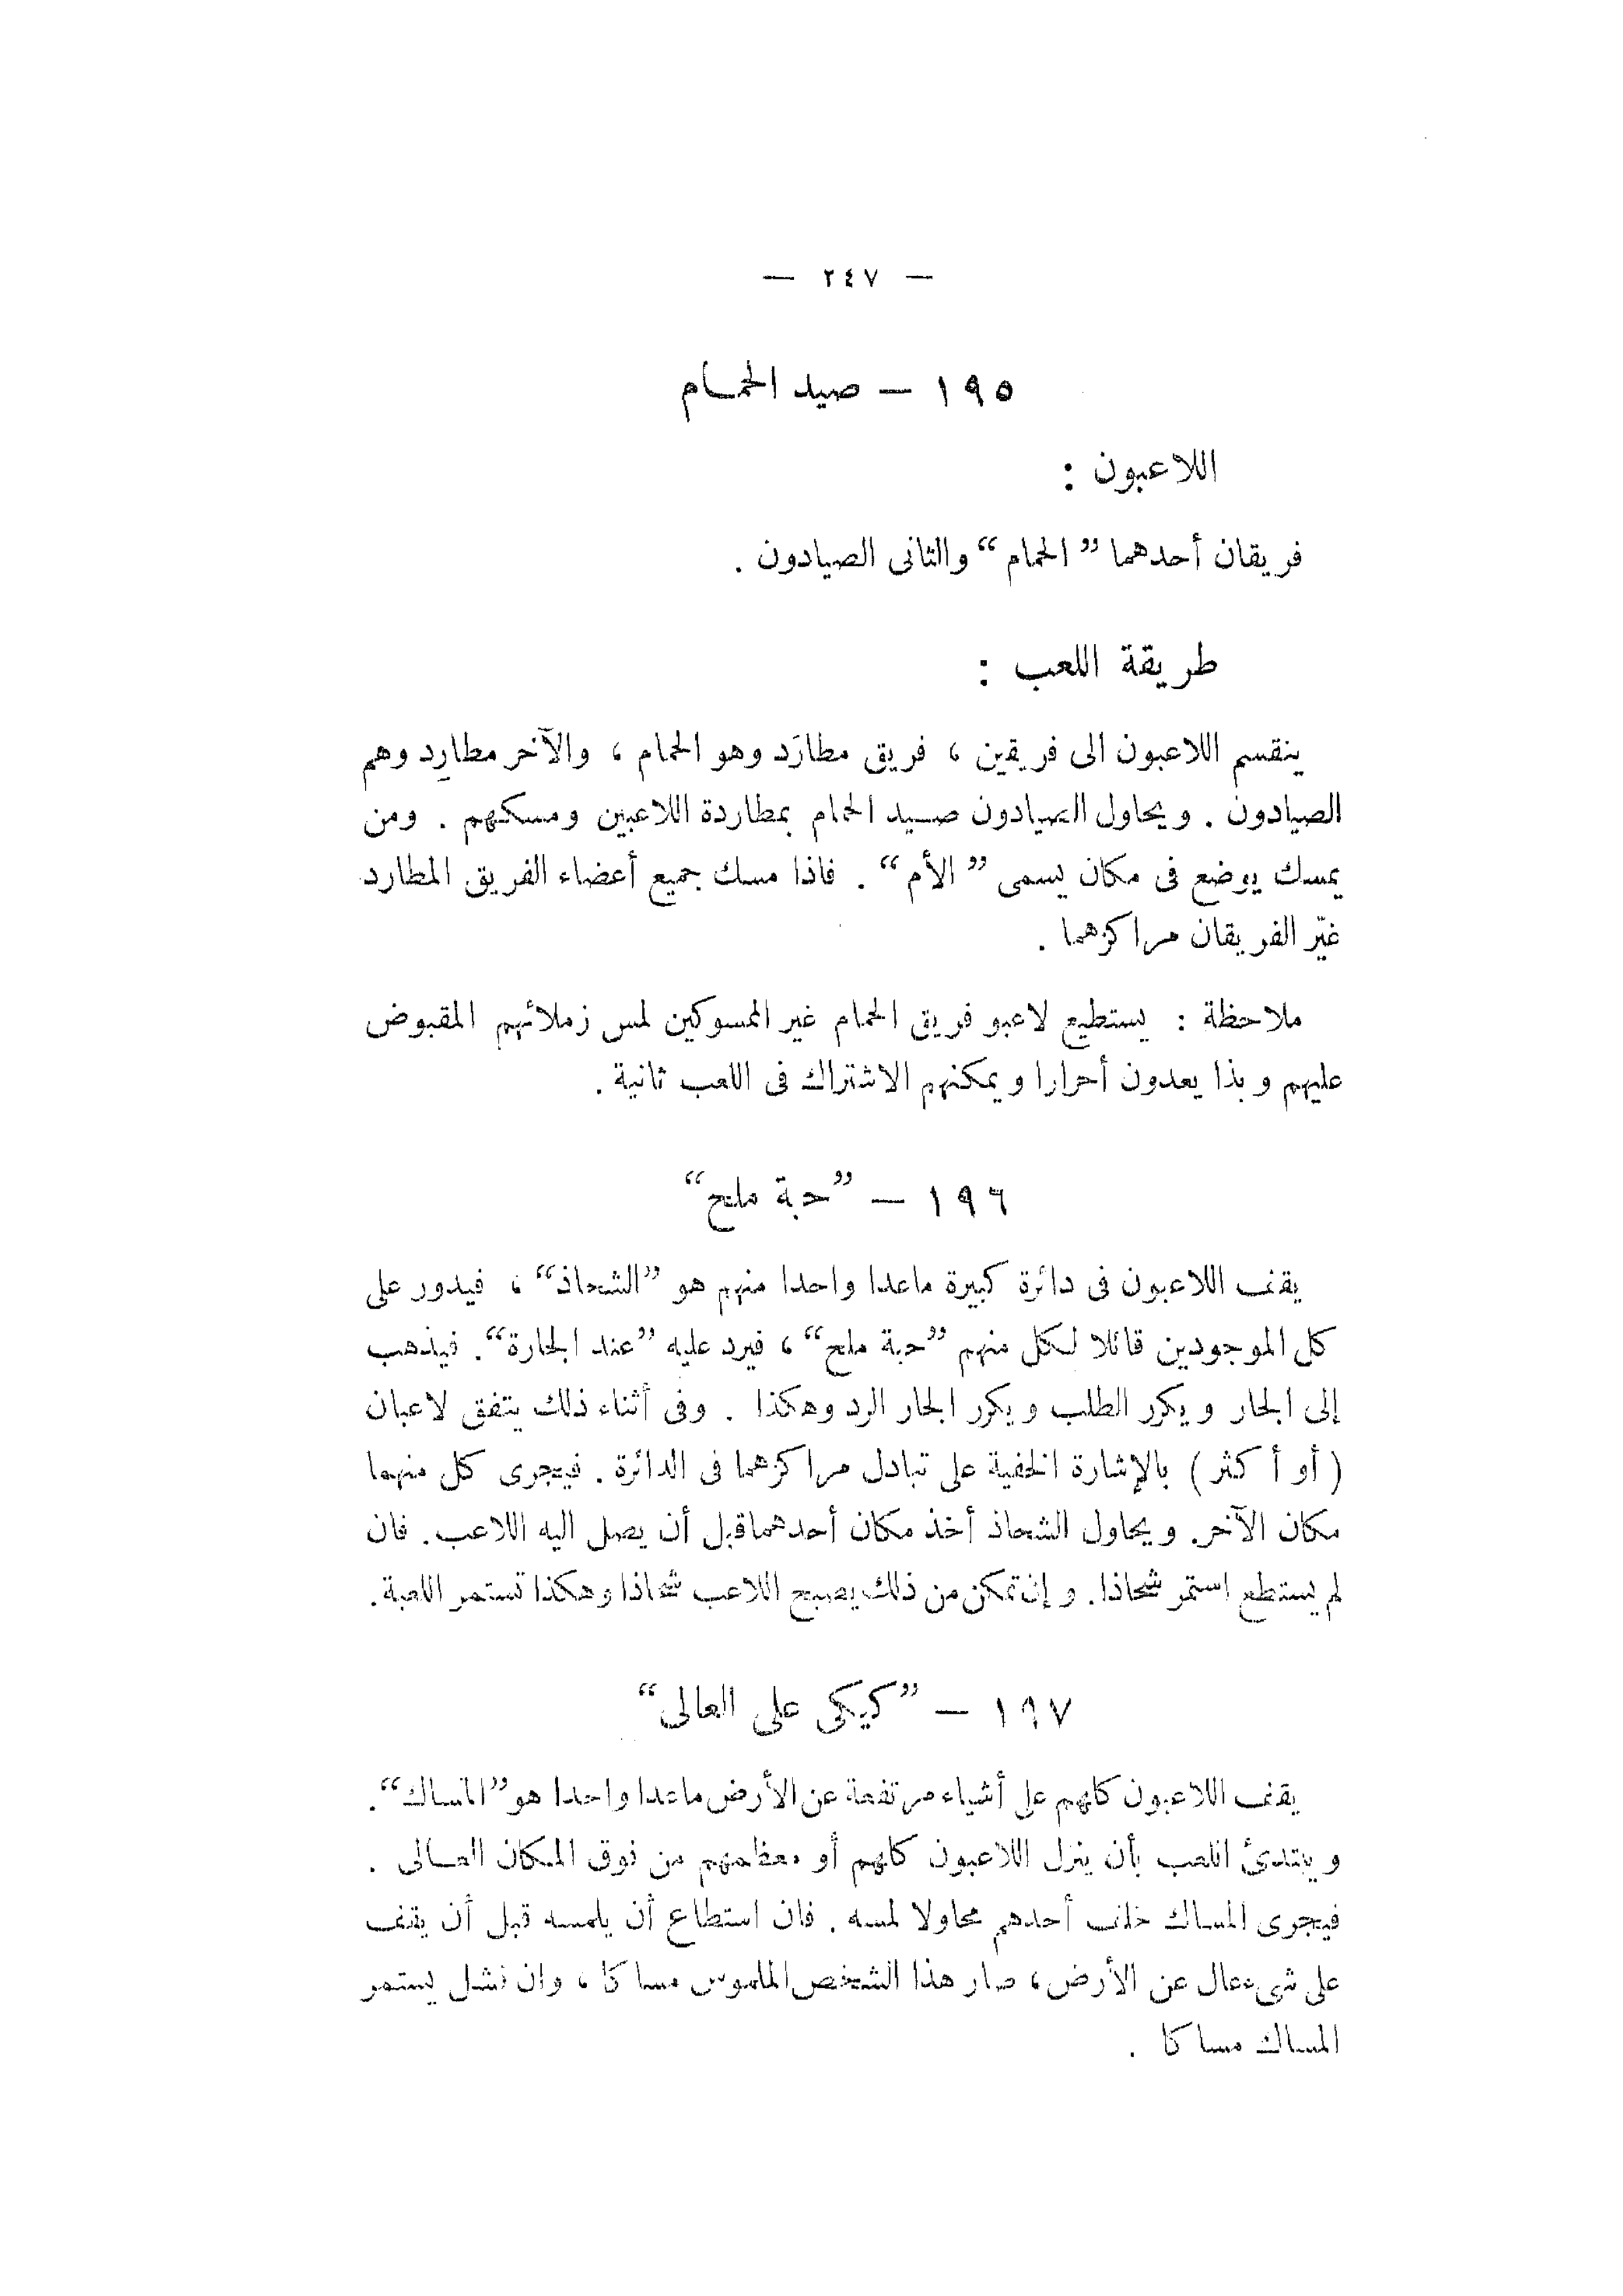 — ٢٤٧ —
١٩٥ — صيد الحمــام
اللاعبون :
فريقان أحدهما ”الحمام“ والثانى الصيادون .
طريقة اللعب :
ينقسم اللاعبون الى فريقين ، فريق مطارَد وهو الحمام ، والآخر مطارِد وهم
الصيادون . ويحاول الصيادون صــيد الحمام بمطاردة اللاعبين ومسكهم . ومن
يمسك يوضع فى مكان يسمى ”الأم“ . فاذا مسك جميع أعضاء الفريق المطارد
غيّر الفريقان مراكزهما .
ملاحظة : يستطيع لاعبو فريق الحمام غير الممسوكين لمس زملائهم المقبوض
عليهم وبذا يعدون أحرارا ويمكنهم الاشتراك فى اللعب ثانية .
١٩٦ — ”حبة ملح“
يقف اللاعبون فى دائرة كبيرة ماعدا واحدا منهم هو ”الشحاذ“ ، فيدور على
كل الموجودين قائلا لكل منهم ”حبة ملح“ ، فيرد عليه ”عند الجارة“ . فيذهب
إلى الجار ويكرر الطلب ويكرر الجار الرد وهكذا . وفى أثناء ذلك يتفق لاعبان
( أو أكثر ) بالإشارة الخفية على تبادل مراكزهما فى الدائرة . فيجرى كل منهما
مكان الآخر . ويحاول الشحاذ أخذ مكان أحدهما قبل أن يصل اليه اللاعب . فان
لم يستطع استمر شحاذا . وإن تمكن من ذلك يصبح اللاعب شحاذا وهكذا تستمر اللعبة .
١٩٧ — ”كيكى على العالى“
يقف اللاعبون كلهم على أشياء مرتفعة عن الأرض ماعدا واحدا هو ”المساك“ .
ويبتدئ اللعب بأن ينزل اللاعبون كلهم أو معظمهم من فوق المكان العــالى .
فيجرى المساك خلف أحدهم محاولا لمسه . فان استطاع أن يلمسه قبل أن يقف
على شىء عال عن الأرض ، صار هذا الشخص الملموس مساكا ، وان فشل يستمر
المساك مساكا .